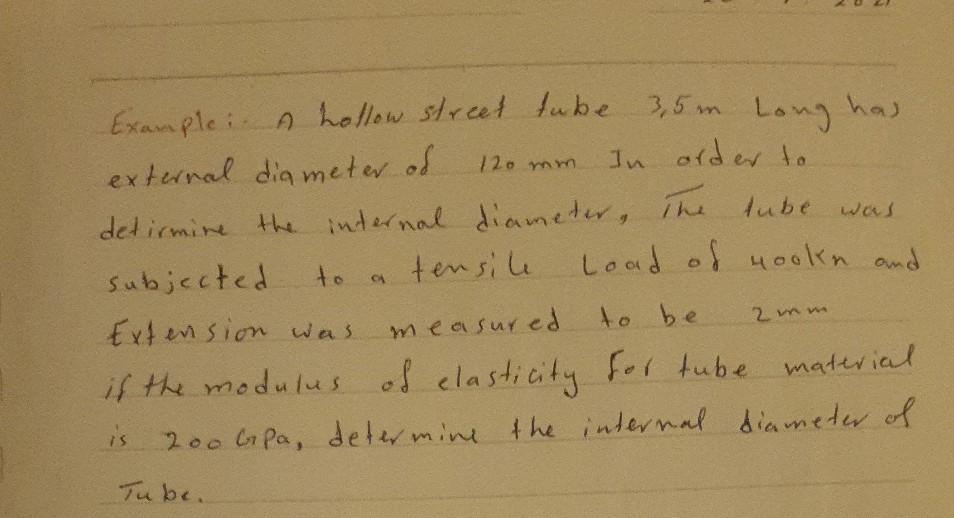 Example:- A hollow street tube 3,5 m Long has
external diameter of 120 mm In order to
detirmine the internal diameter, The tube was
subjected to a tensile Load of 400kn and
Extension was measured to be 2mm
if the modulus of elasticity for tube material
is 200 GPa, determine the internal diameter of
Tube.